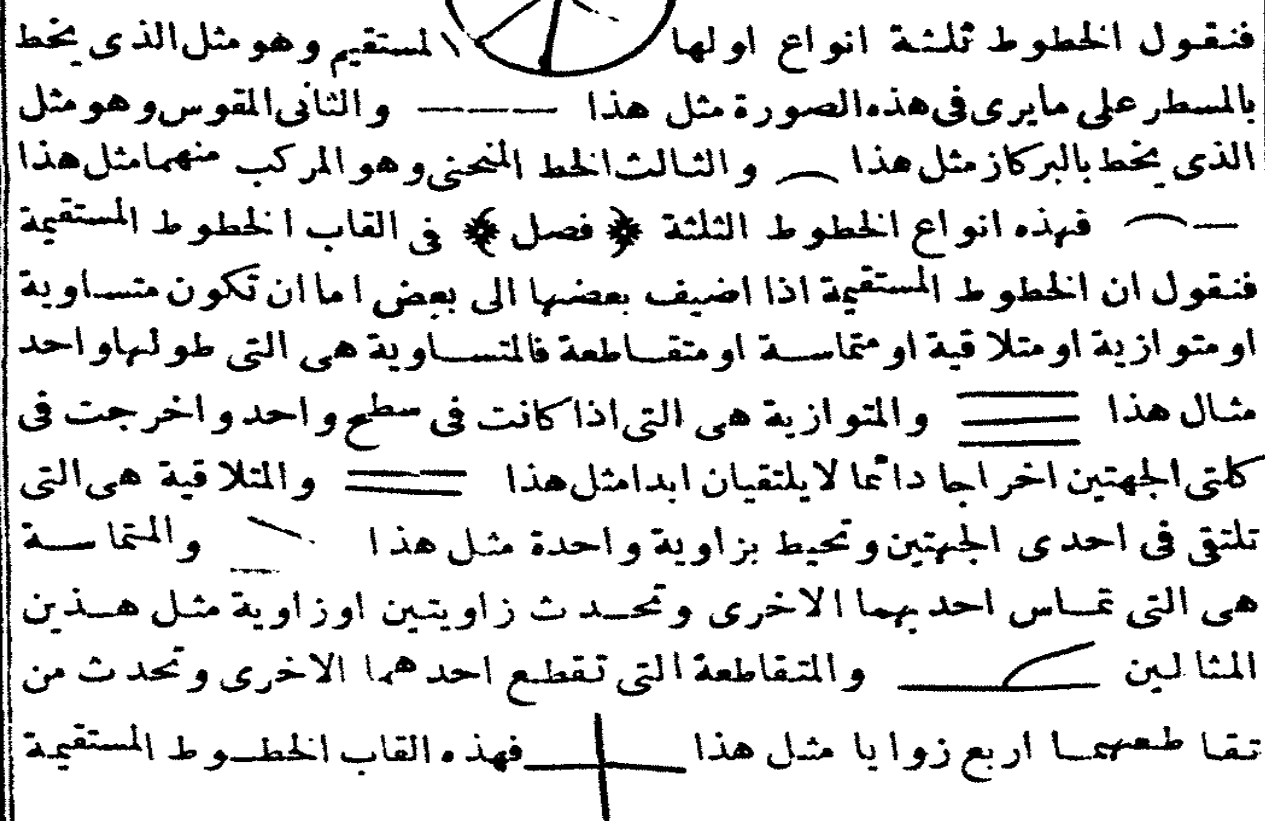 فنقول الخطوط ثلثة انواع اولها المستقيم وهو مثل الذى يخط
بالمسطر على مايرى فى هذه الصورة مثل هذا والثانى المقوس وهو مثل
الذى يخط بالبركاز مثل هذا والثالث الخط المنحنى وهو المركب منهما مثل هذا
فهذه انواع الخطوط الثلثة ﴿ فصل ﴾ فى القاب الخطوط المستقيمة
فنقول ان الخطوط المستقيمة اذا اضيف بعضها الى بعض اما ان تكون متساوية
او متوازية او متلاقية او متماسة او متقاطعة فالمتساوية هى التى طولها واحد
مثال هذا والمتوازية هى التى اذا كانت فى سطح واحد واخرجت فى
كلتى الجهتين اخراجا دائما لا يلتقيان ابدا مثل هذا والمتلاقية هى التى
تلتقى فى احدى الجهتين وتحيط بزاوية واحدة مثل هذا والمتماسة
هى التى تماس احديهما الاخرى وتحدث زاويتين اوزاوية مثل هذين
المثالين والمتقاطعة التى تقطع احدهما الاخرى وتحدث من
تقاطعهما اربع زوايا مثل هذا فهذه القاب الخطوط المستقيمة